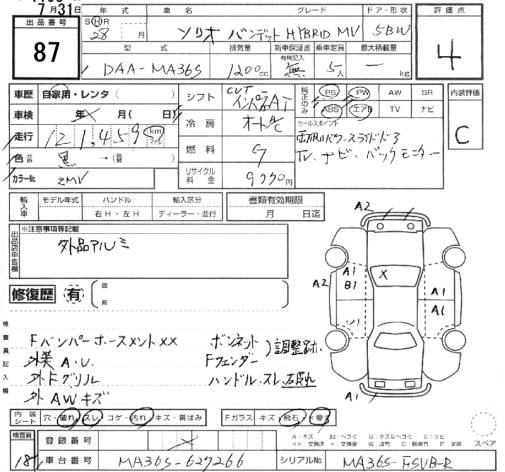 7月31日
出品番号
87
年式
車名
グレード
ドア・形状
評価点
SH
28
月
ソリオ バンデット HYBRID MV
5BW
4
型式
排気量
新車保証書
有無記入
乗車定員
最大積載量
DAA-MA36S
1200cc
無
5人
kg
車歴
自家用・レンタ( )
シフト
CVT
インパネAT
純正のみ
PS PW AW SR
ABS エアB TV ナビ
内装評価
C
車検
年 月( 日)
走行
121,459
km
冷房
オートAC
セールスポイント
両側パワースライドドア
TV、ナビ、バックモニター
色
黒
燃料
G
カラーNo
ZMV
リサイクル料金
9990円
輸入車
モデル年式
ハンドル
輸入区分
書類有効期限
右H・左H
ディーラー・並行
月 日迄
出品店申告欄
※注意事項等記載
外品アルミ
修復歴
有
箇所
A2
A1
B1
A2
X
A1
A1
A2
検査員記入欄
Fバンパーホースメント××
外装A.U.
外Fグリル
外AWキズ
ボンネット
Fフェンダー
調整跡
ハンドルスレ
内装シート
穴・破れ・スレ・コゲ・汚れ・キズ・黄ばみ
Fガラス
キズ・飛石・
スペア
検査員
登録番号
車台番号
MA36S-627266
シリアルNo
MA36S-FSVB-R